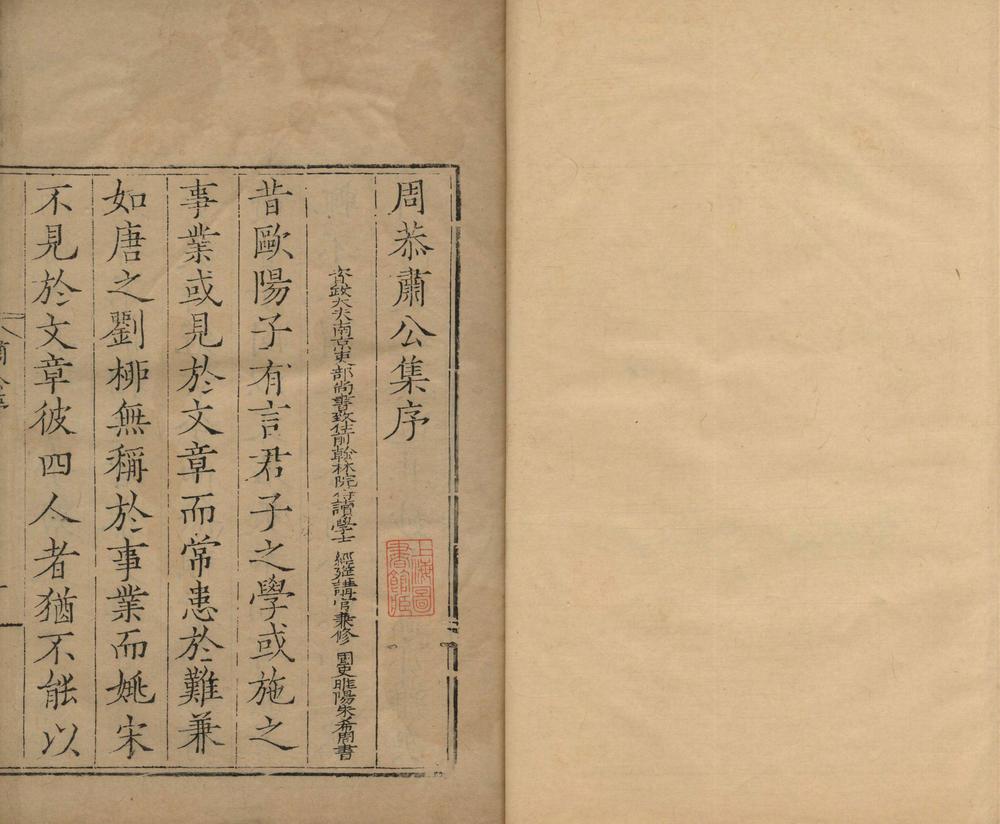 周恭肅公集序
資政大夫南京吏部尚書致仕前翰林院侍讀學士 經筵講官兼修 國史睢陽朱希周書
昔歐陽子有言君子之學或施之
事業或見於文章而常患於難兼
如唐之劉柳無稱於事業而姚宋
不見於文章彼四人者猶不能以
上海圖
書館藏